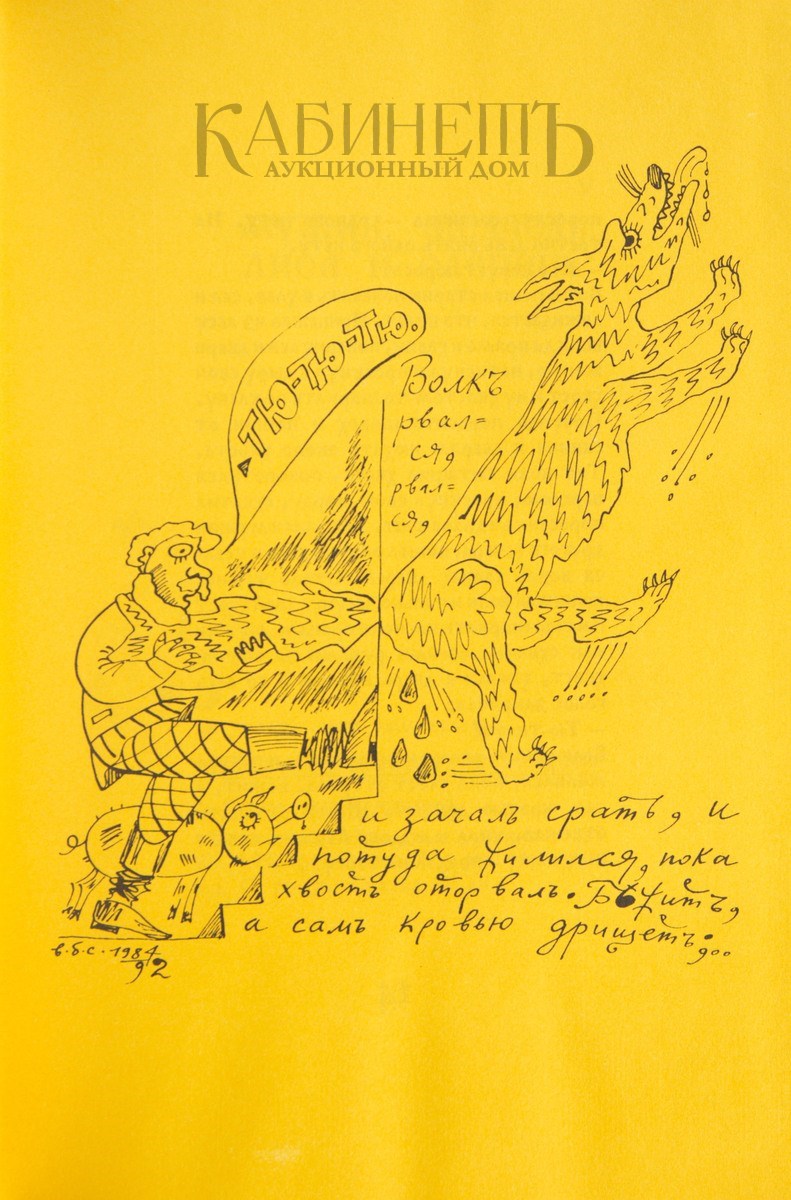 КАБИНЕТЪ
АУКЦИОННЫЙ ДОМ
ТЮ-ТЮ-ТЮ.
Волкъ
рвал=
ся,
рвал=
ся,
и зачалъ срать, и
потуда жилился, пока
хвостъ оторвалъ. Бѣжитъ,
а самъ кровью дрищетъ...
в.б.с. 1984
92